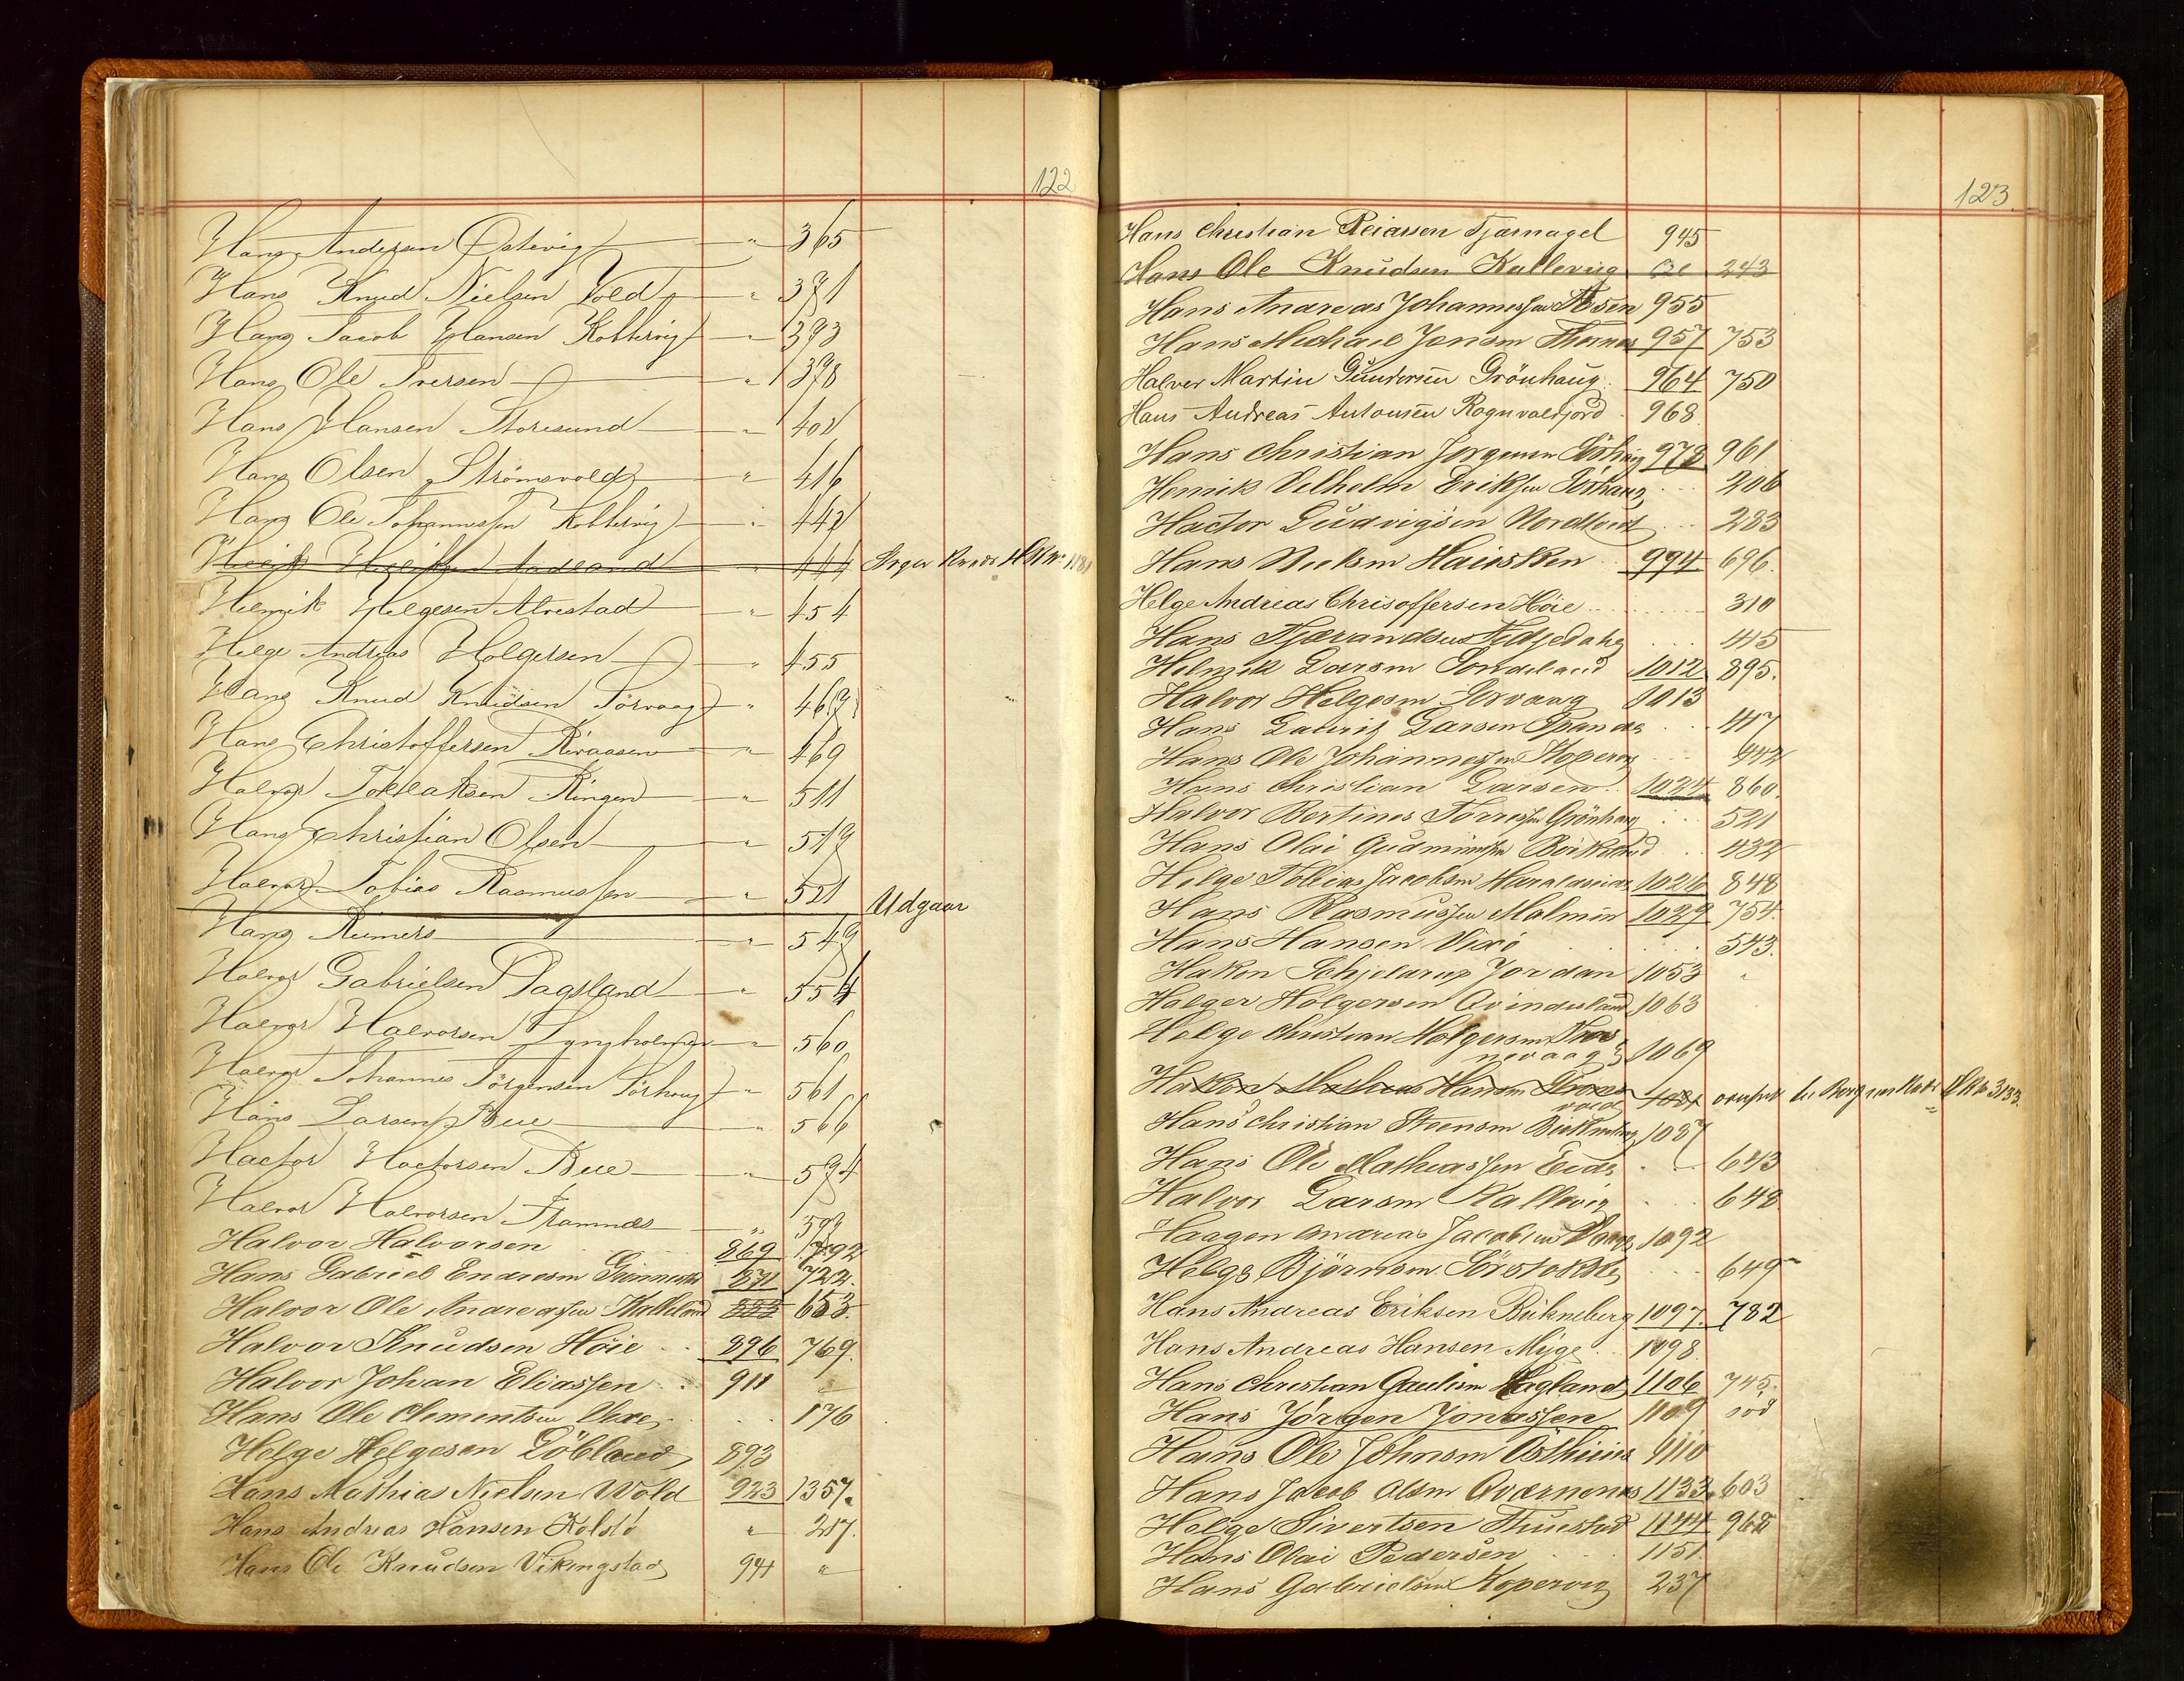 122
Hans Andersen Østevig " 365
Hans Knud Nielsen Vold " 371
Hans Jacob Hansen Kobbervig " 373
Hans Ole Iversen " 378
Hans Hansen Storesund " 402
Hans Olsen Strømsvold " 416
Hans Ole Johannessen Kobbervig " 442
" 444
Helmik Helgesen Alvestad " 454
Helge Andreas Holgersen " 455
Hans Knud Knudsen Sörvaag " 467
Hans Christoffersen " 469
Halvor Tollaksen Ringen " 511
Hans Christian Olsen " 519
Halvor Tobias Rasmussen " 521 Udgaar
Hans Reimers " 549
Halvor Gabrielsen Dagsland " 554
Halvor Halvorsen Lyngholmen " 560
Halvor Johannes Jörgensen Sörhaug " 561
Hans Larsen Bue " 566
Hactor Hactorsen Bue " 574
Halvor Halvorsen Framnes "
Halvor Halvorsen 869 1792
Hans Gabriel Endresen 871 722.
Halvor Ole Andreassen Kalleland 653.
Halvor Knudsen Höie 896 769.
Halvor Johan Eliassen 911 "
Hans Ole Clementsen 176
Helge Helgesen 893
Hans Mathias Nielsen Wold 923 1357.
Hans Andreas Hansen Kolstö " 217.
Hans Ole Knudsen Vikingstad 941 "
123
Hans Christian Reiarsen Tjærnagel 945
Hans Ole Knudsen Kallevig 243
Hans Andreas Johannessen Aasen 955
Hans Michael Jensen 957 753
Halvor Martin Gundersen Grönhaug 964 750
Hans Andreas Antonsen Rognvaldfjord 968
Hans Christian Jörgensen 978 961
Henrik Vilhelm Eriksen Sörhaug 206
Hactor Ludvigsen Nordtveit 283
Hans Nielsen 994 696.
Helge Andreas Chrisoffersen Höie 310
Hans 445
Helmik Larsen 1012 895.
Halvor Helgesen Sörvaag 1013
Hans Larsen 417
Hans Ole Johannessen Kopervig 442
Hans Christian Larsen 1024 860.
Halvor Bertines Grönhaug 521
Hans Olai Gudmundsen 432
Helge Tobias Jacobsen 1026 848
Hans Rasmussen Malmin 1029 754.
Hans Hansen 543.
Hakon Schjelderup Jordan 1053 "
Holger Holgersen Qvindesland 1063
Helge Christian Holgersen 1069
Hakon Mathias Hansen
Hans Christian Steensen 1087
Hans Ole Mathiassen Eide 643
Halvor Larsen Kallevig 648
Haagen Andreas Jacobsen 1092
Helge Björnsen 649
Hans Andreas Eriksen Birkneberg 1097. 782
Hans Andreas Hansen Myge 1098
Hans Christian Hagland 1106 745.
Hans Jörgen Jonassen 1109
Hans Ole Johnsen 1110
Hans Jacob Olsen Qværnenes 1133 603
Helge Sivertsen Thuestad 1144 968
Hans Olai Pedersen 1151.
Hans Gabrielsen Kopervig 237